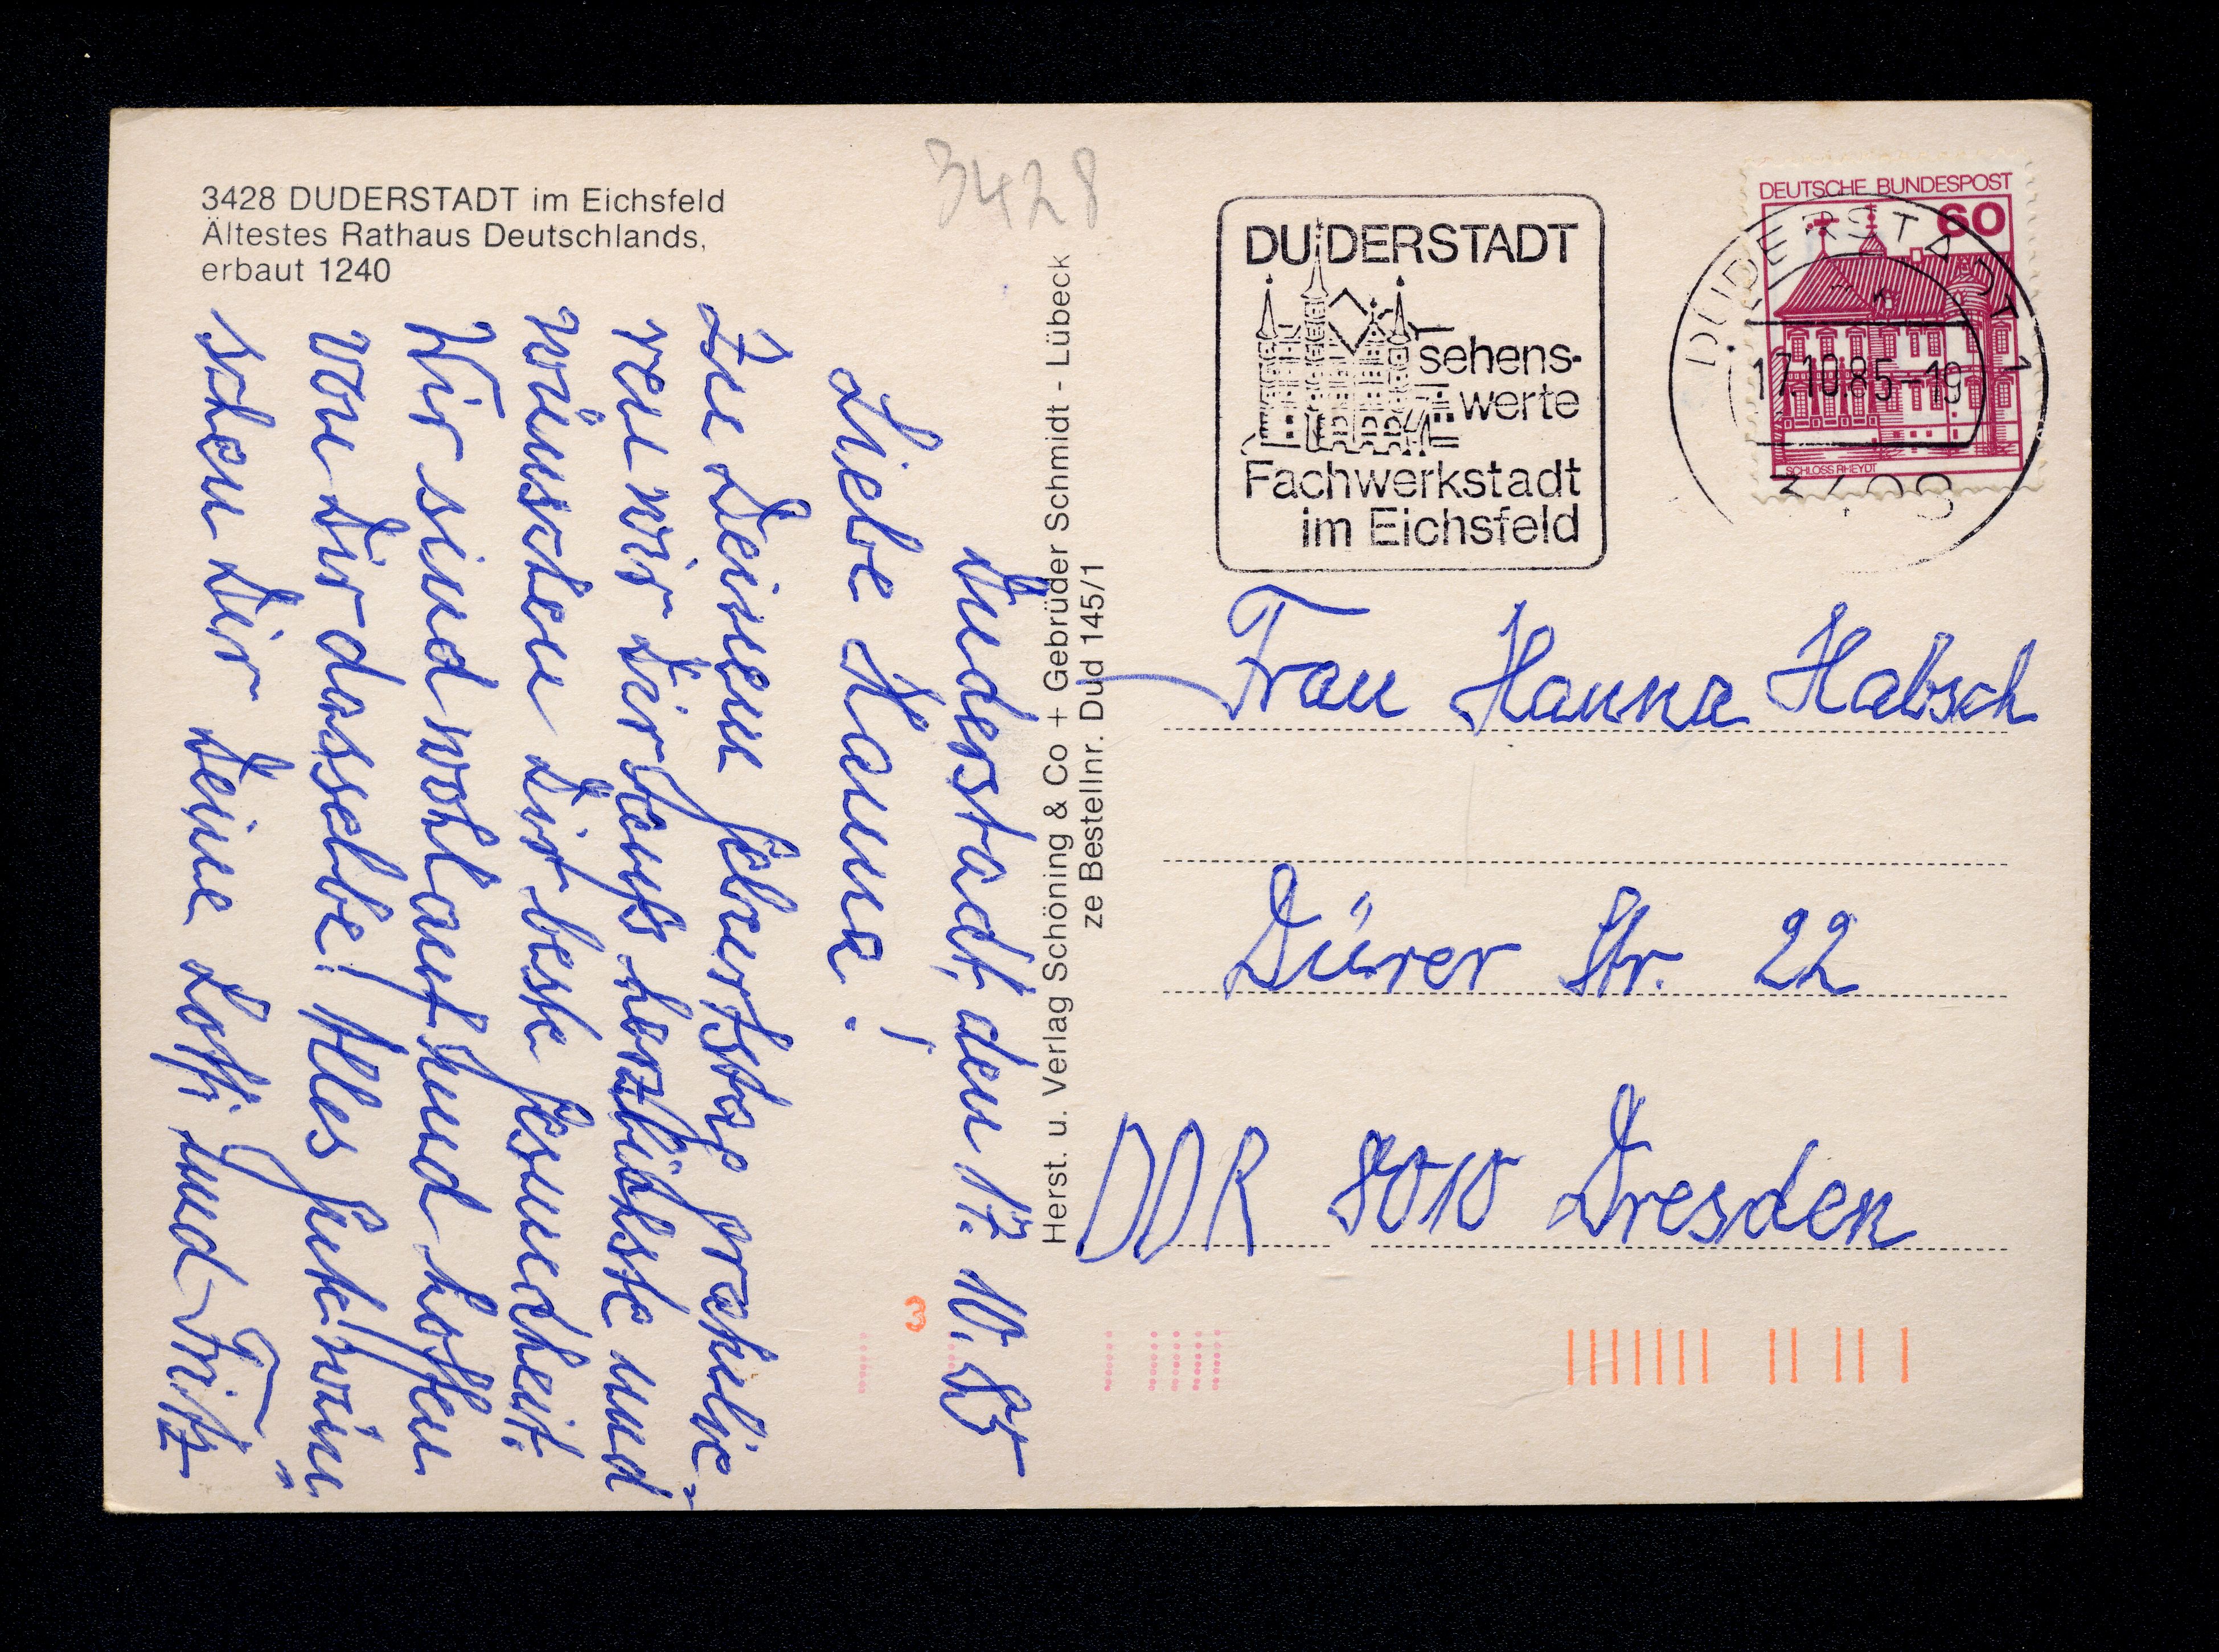 3428 DUDERSTADT im Eichsfeld
Ältestes Rathaus Deutschlands,
erbaut 1240
3428
Duderstadt, den 17. 10. 85
Liebe Hanna!
Zu Deinem Geburtstag gratulie-
ren wir Dir ganz herzlichste und
wünschen Dir beste Gesundheit.
Wir sind wohlauf und hoffen
von Dir dasselbe! Alles Gute wün
schen Dir Deine Lotti und Fritz
Herst. u. Verlag Schöning & Co + Gebrüder Schmidt - Lübeck
ze Bestellnr. Dud 145/1
DUDERSTADT
sehens-
werte
Fachwerkstadt
im Eichsfeld
DEUTSCHE BUNDESPOST
60
SCHLOSS RHEYDT
DUDERSTADT 1
17.10.85-19
Frau Hanna Habsch
Dürer Str. 22
DDR 8010 Dresden
3